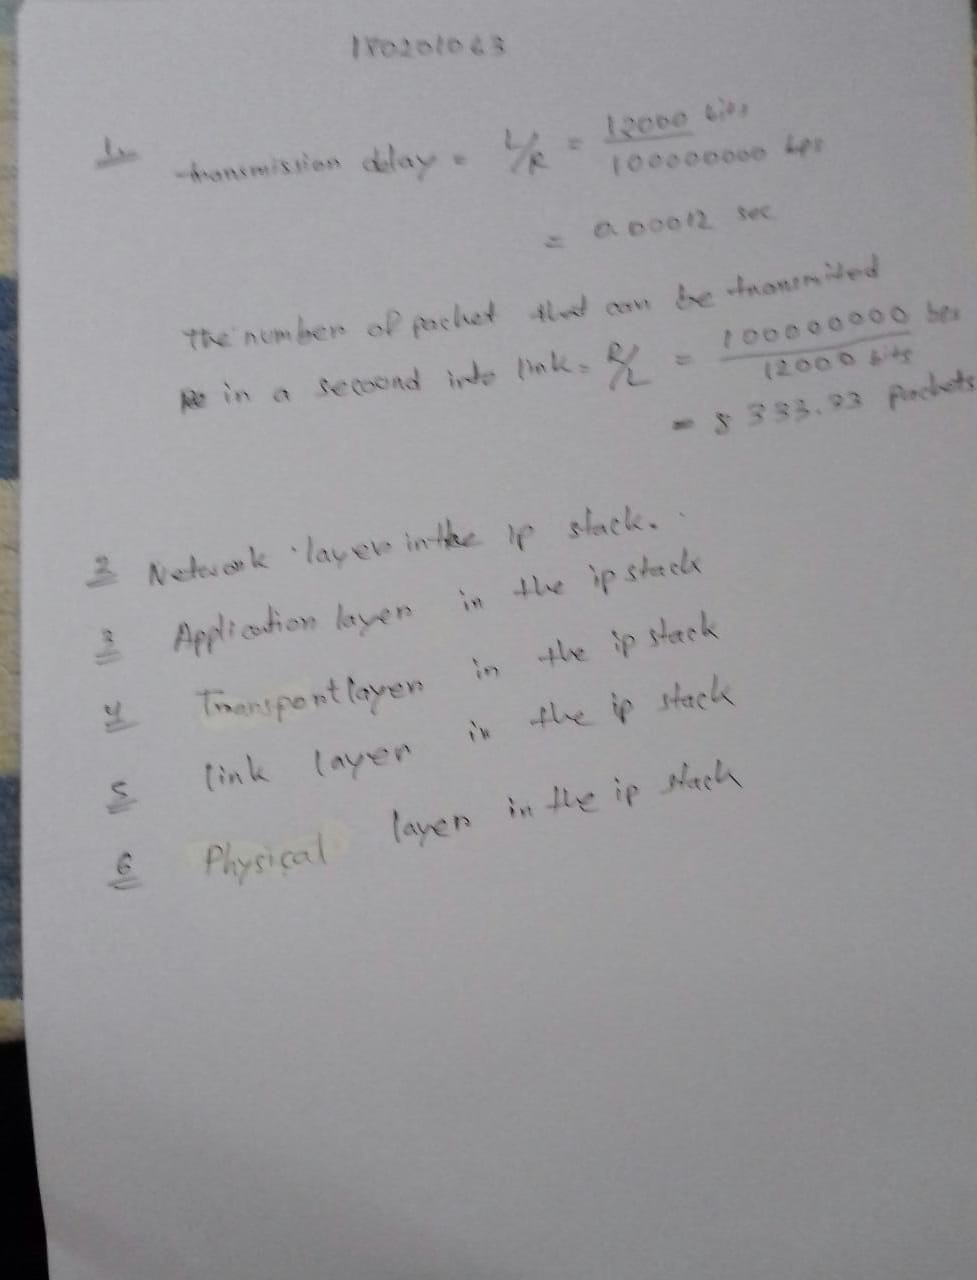 180201063
1. transmission delay = L/R = 12000 bits / 100000000 bps
= 0.00012 sec
The number of packet that can be transmited
in a secoond into link = R/L = 100000000 bps / 12000 bits
= 8333.33 packets
2 Network layer in the ip stack.
3 Application layer in the ip stack
4 Transport layer in the ip stack
5 link layer in the ip stack
6 Physical layer in the ip stack